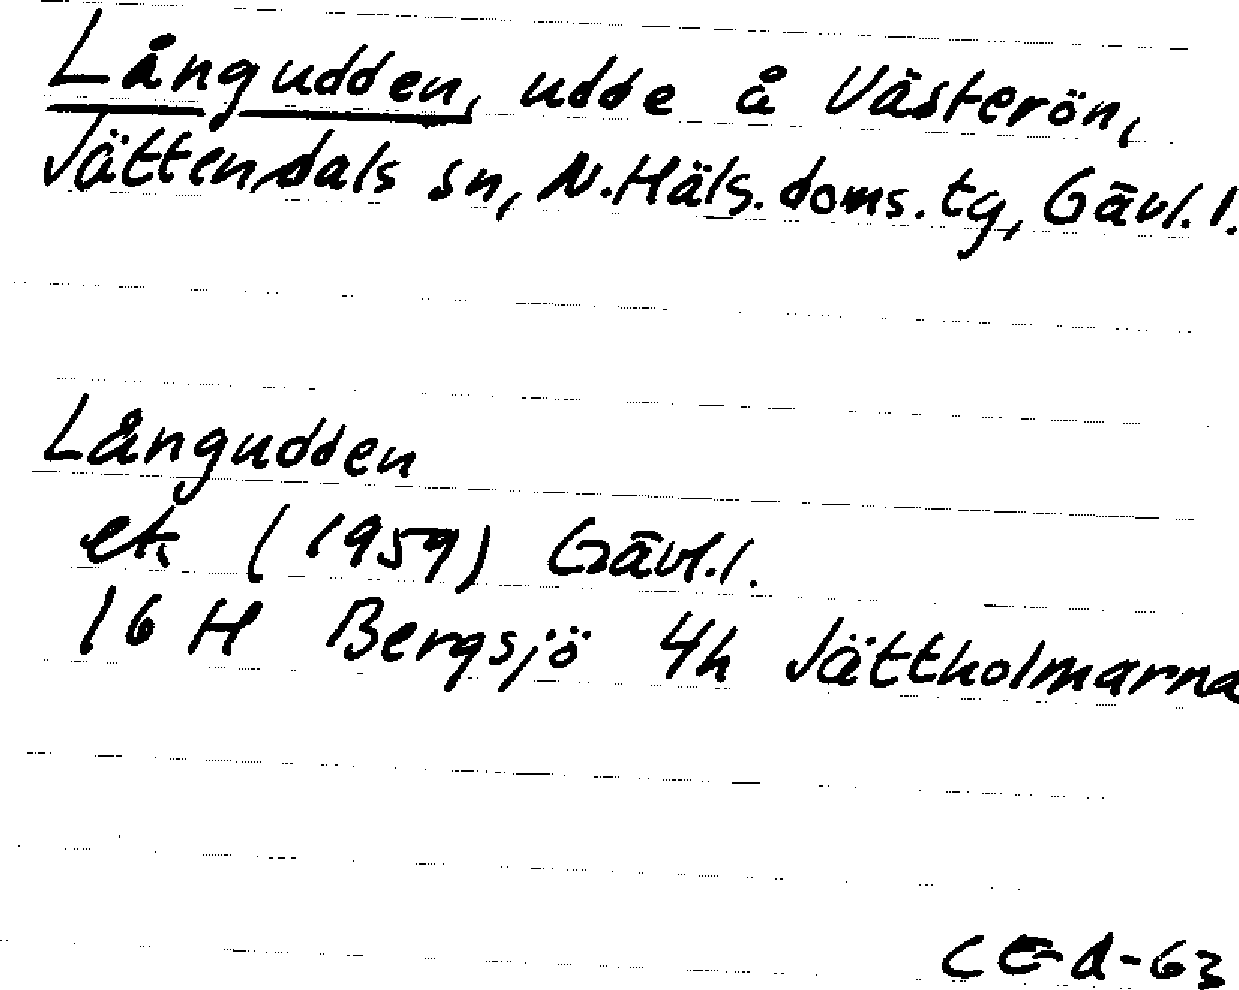 Långudden, udde å Västerön,
Jättendals sn, N.Häls.doms.tg, Gävl.l.
Långudden
ek (1959) Gävl.l.
16 H Bergsjö 4h Jättholmarna
CEd-63